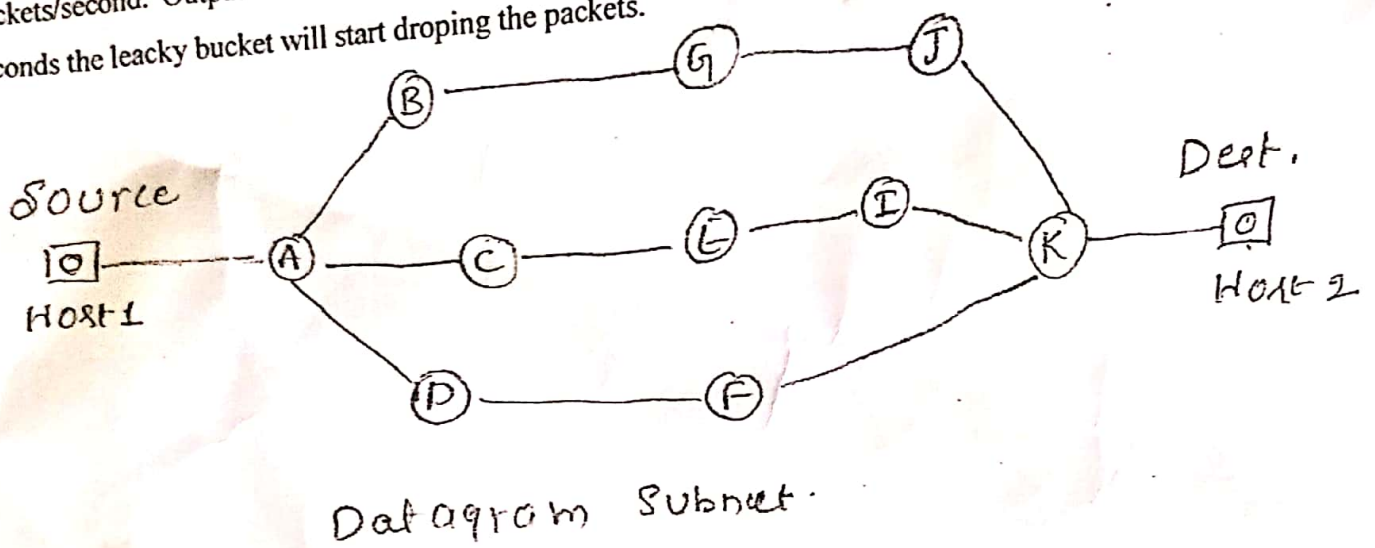 ckets/second.
conds the leacky bucket will start droping the packets.
B
G
J
Source
Dest.
A
C
E
I
K
Host 1
Host 2
D
F
Datagram Subnet.